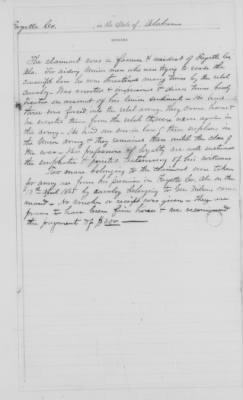 Fayette Co. in the State of Alabama
REMARKS
The claimant was a farmer & resident of Fayette Co
Ala. For aiding Union men who were trying to evade the
Conscript law he was threatened many times by the rebel
cavalry. Was arrested & imprisoned & three times badly
beaten on account of his Union sentiments. He had
three sons forced into the rebel army. They came home &
he rescued them from the rebels & were again in
the army. He had one son in law & three nephews in
the Union army & they remained there until the close of
the war. His professions of loyalty are well sustained
the emphatic & positive testimony of his witness
Two mares belonging to the claimant were taken
for army use from his premises in Fayette Co. Ala on the
1st April 1865 by cavalry belonging to Gen Wilson's com
mand. No voucher or receipt was given. They are
proven to have been fair horses & we recommend
the payment of $200